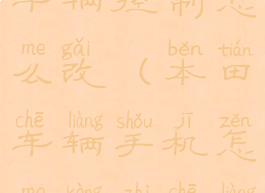 车辆控制怎
me gǎi běn tián
么改(本田
chē liàng shǒu jī zěn
车辆手机怎